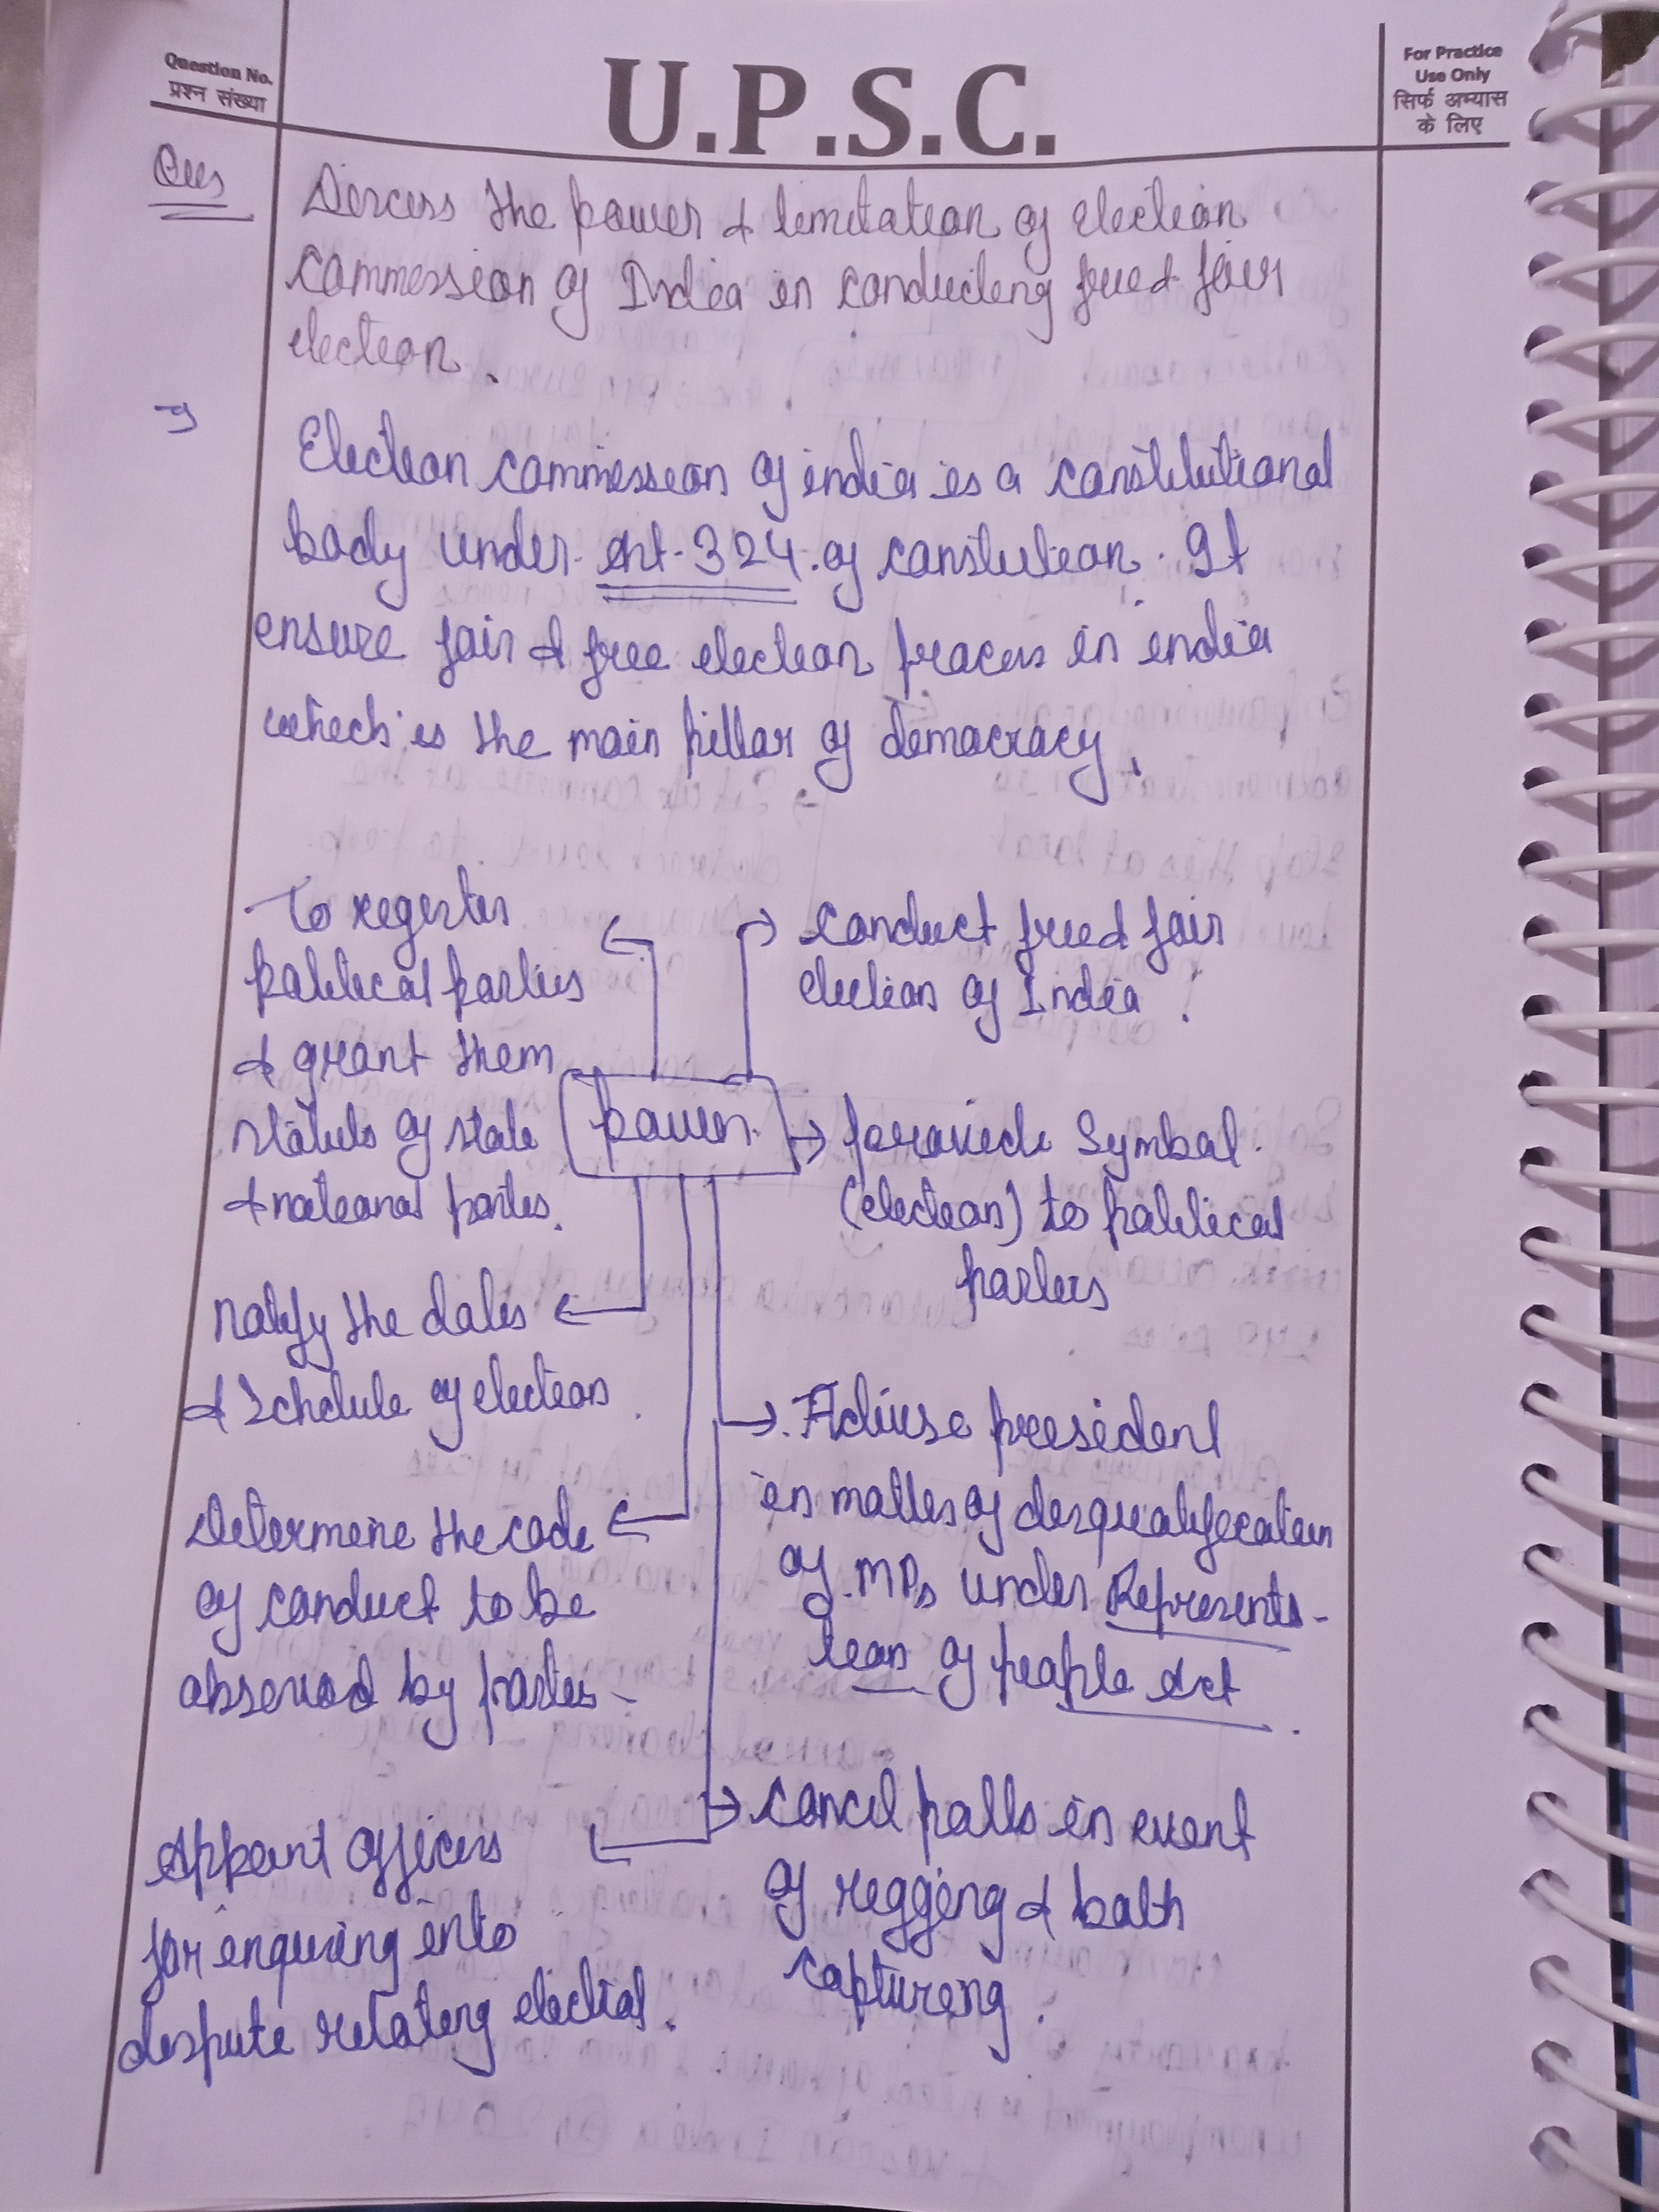 Question No.
प्रश्न संख्या
U.P.S.C.
For Practice
Use Only
सिर्फ अभ्यास
के लिए
Ques
Discuss the power & limitation of election
commission of India in conducting free & fair
election.
Election commission of india is a constitutional
body under Art. 324 of constitution. It
ensure fair & free election process in india
which is the main pillar of democracy.
Power
conduct free & fair
election of India
provide Symbol
(election) to political
parties
Advise president
in matters of disqualification
of MPs under Representa-
tion of people Act.
cancel polls in event
of rigging & both
capturing.
To register
political parties
& grant them
status of state
& national parties.
notify the dates
& Schdule of election.
Determine the code
of conduct to be
observed by parties
Appoint officers
for enquiring into
dispute relating